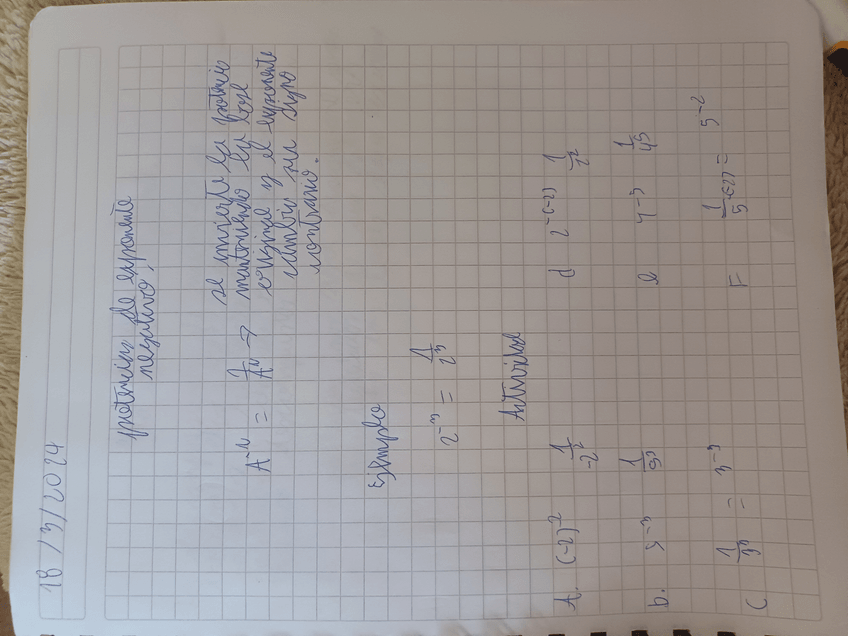 18/3/2024
potencias de exponente
negativo,
A⁻ᴺ = 1/Aᴺ → se invierte la potencia
manteniendo la base
original y el exponente
cambia su signo
contrario.
Ejemplo
2⁻³ = 1/2³
Actividad
A. (-2)⁻² 1/-2² d 2⁻⁽⁻²⁾ 1/2²
b. 9⁻³ 1/9³ e 4⁻⁵ 1/4⁵
C 1/3³ = 3⁻³ F 1/5⁽²⁾ = 5⁻²